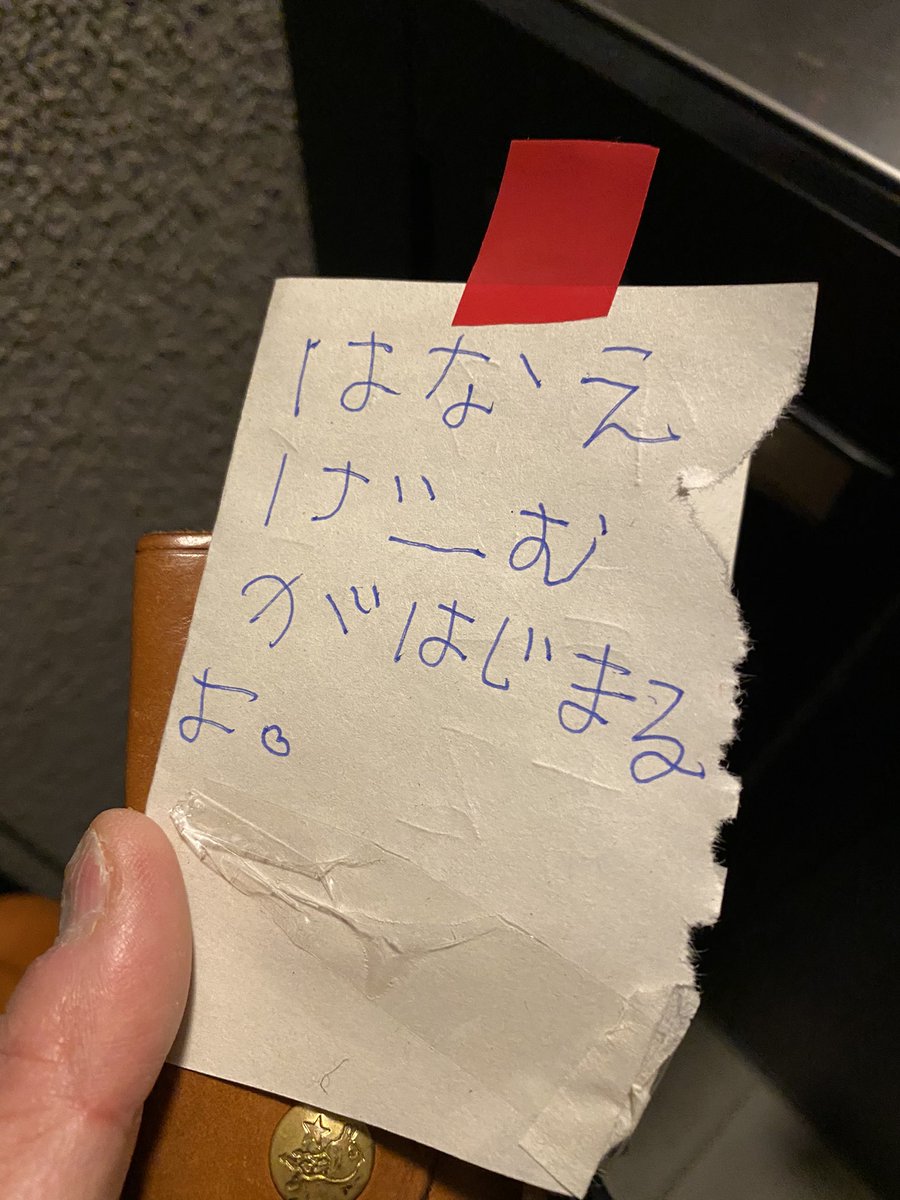 はなえ
げーむ
がはじまる
よ。